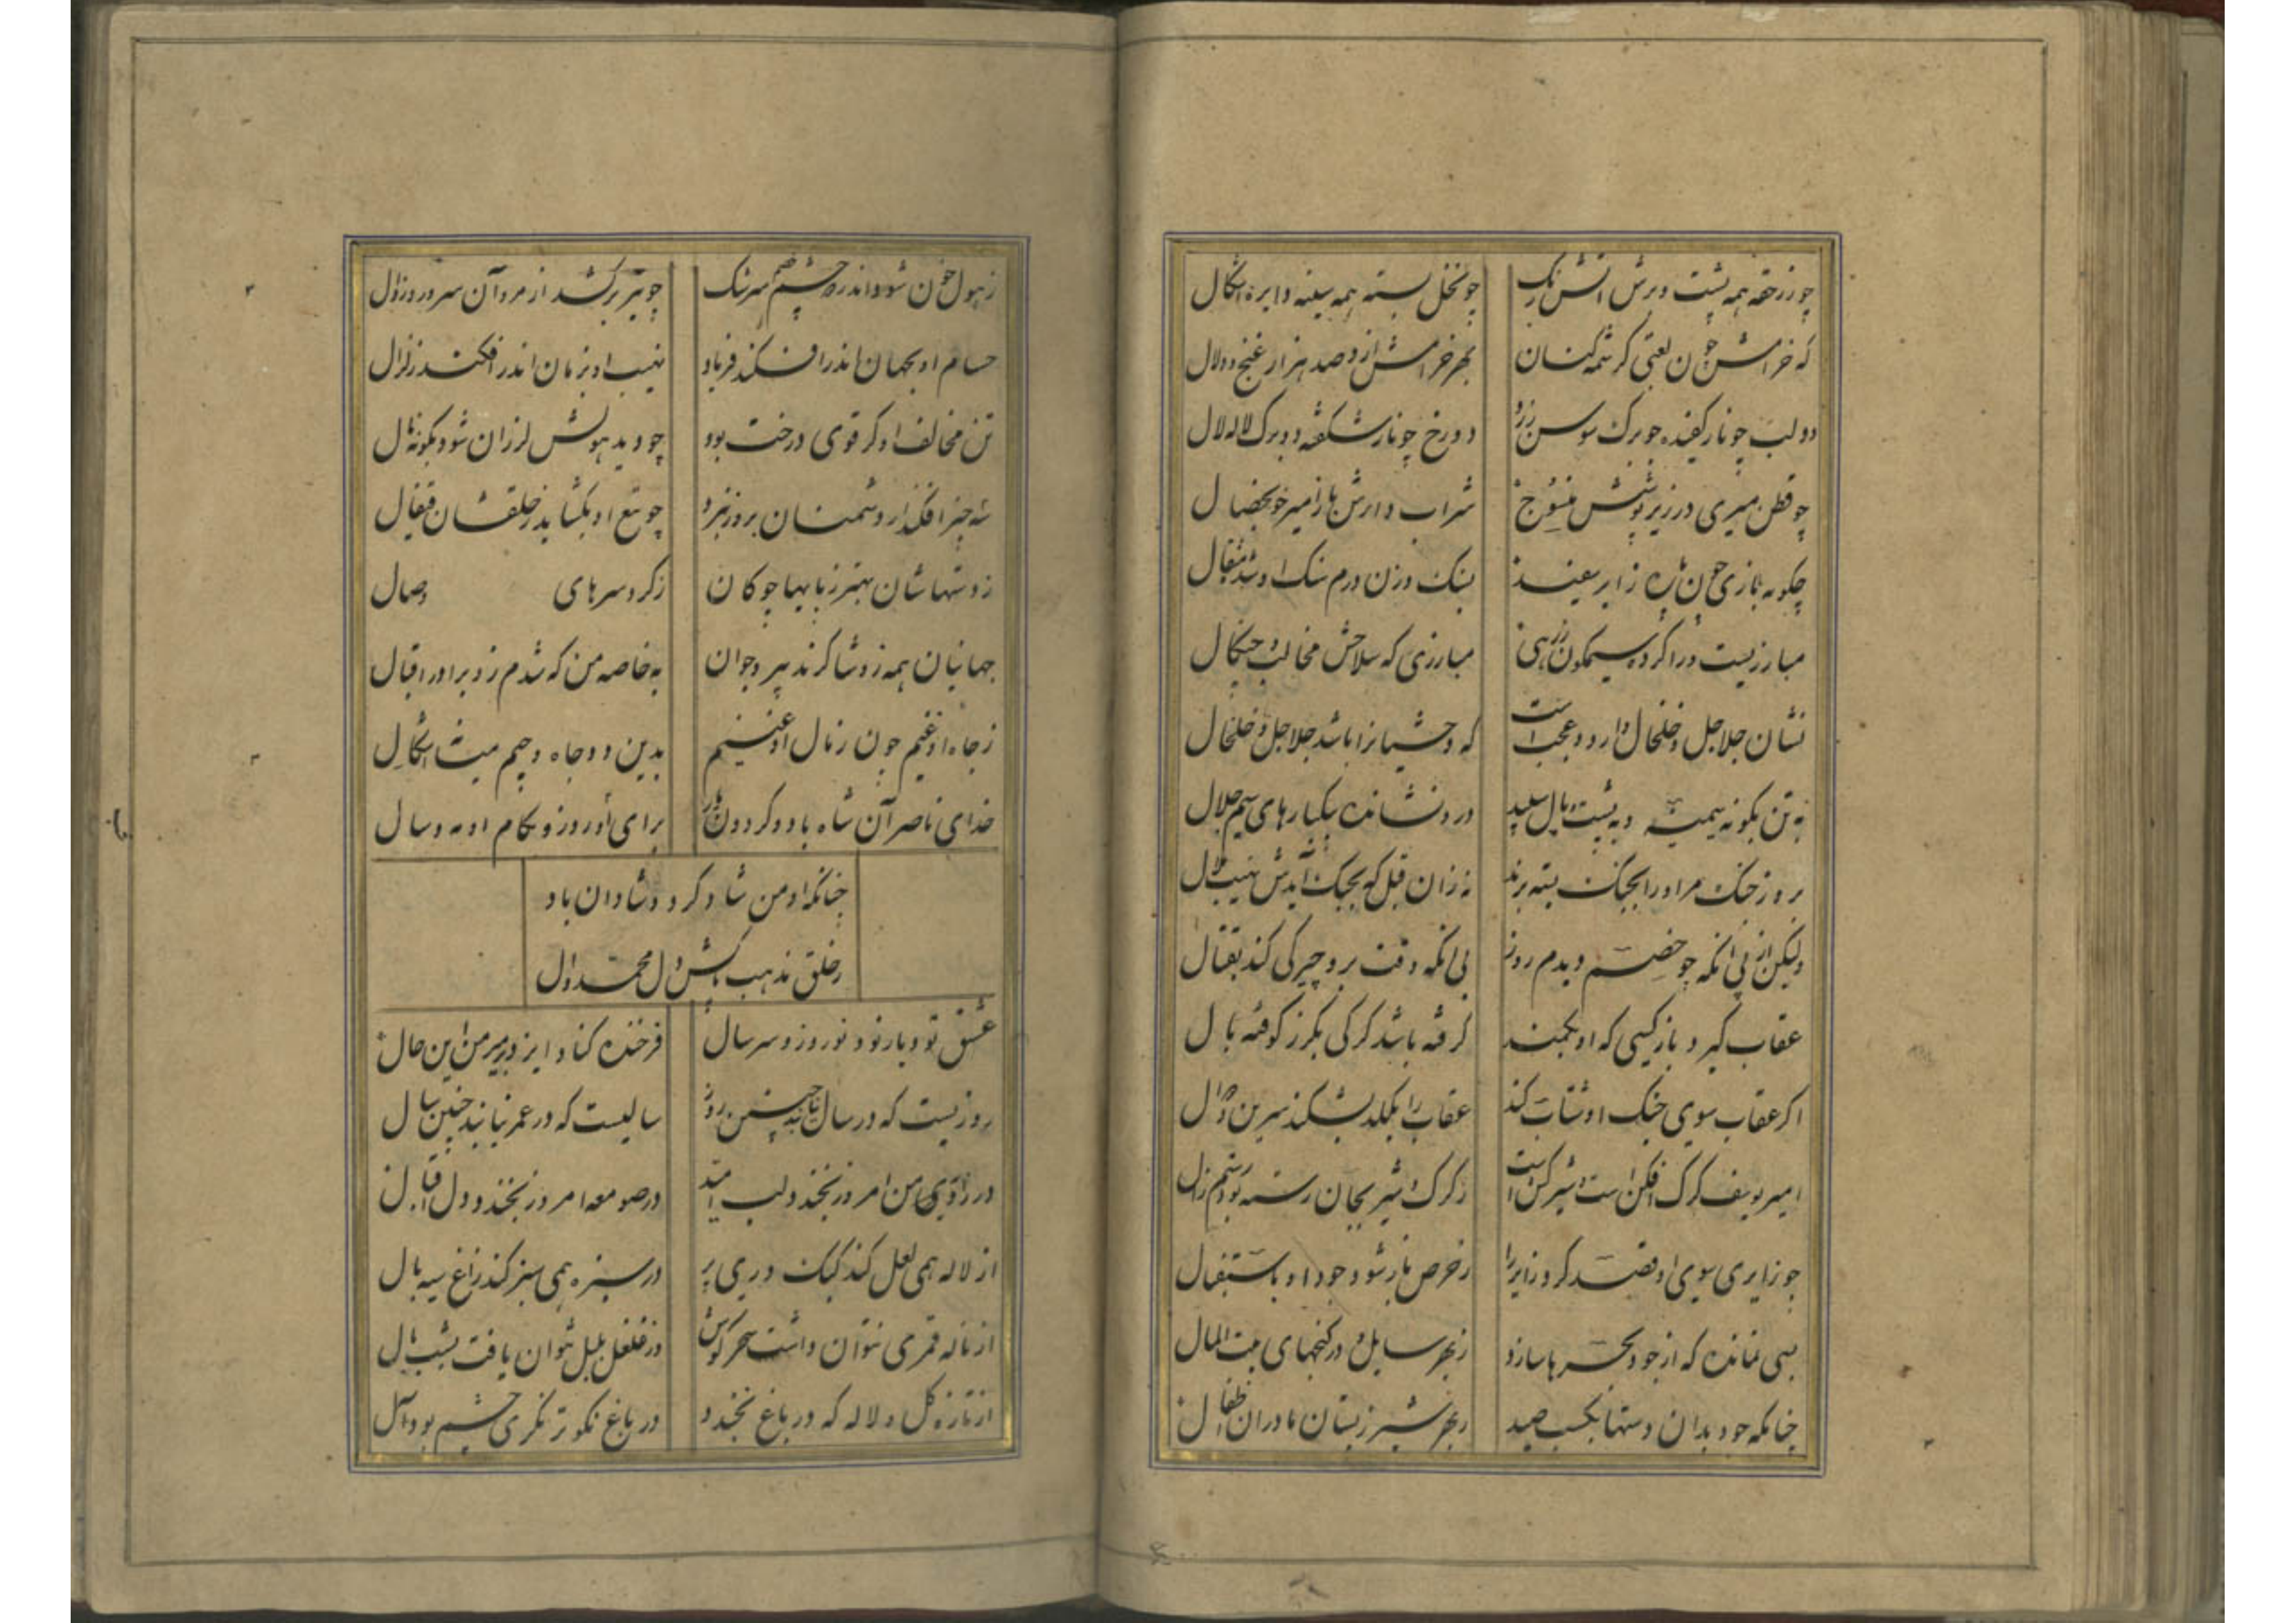 چو زر حقه همه پشت و برش آتش رنگ چو نخل بسته همه سینه دایره اشکال
که خرامش چون لعبتی کرشمه کنان بهر خرامش ازو صد هزار غنج و دلال
دو لب چو نار کفیده چو برک سوسن زرد دو رخ چو نار شکفته دو برک لاله لال
چو قطن میری در زیر پوشش منسوج شراب دارش
چکونه بازی چون پاره ز ابر سفید بسنک وزن درم سنک او مثقال
مبارزیست ورا کرده سیمکون زرهی مبارزی که سلاحش مخالب و چنکال
نشان جلاجل و خلخال دارد و عجبست که وحشیانرا باشد جلاجل و خلخال
به تن بکونه سیمست و به پشت پیل سپید درو نشانده بیکبارهای سیم حلال
بروز جنک مر او را بجنک بسته برند نه زان قبل که بجنک آیدش نهیب
ولیکن از پی آنکه چو خصم دیدم روز بی آنکه وقت برو چیرکی کند بقتال
عقاب کیرد باز کسی که او بکمند کرفته باشد کرکی بکرز کوفته یال
اکر عقاب سوی جنک او شتاب کند عقاب را بلکد بشکند سرین و
امیر یوسف کرک افکن است شیرکش است ز کرک و شیر بجان رسته بود رستم زال
چو زایری سوی او قصد کرد زایر را ز حرص باز شود جود او باستقبال
بسی نمانده که از جود بحرها سازد ز بهر سایل در کنجهای بیت المال
چنانکه جود بدان دستها بکسب صید ز بهر شیر ز پستان مادران اطفال
ز هول خون شود اندر دو چشم خصم سرشک چو تیر برکشد از مرد آن سرور
حسام او بجهان اندر افکند فریاد نهیب او بزمان اندر افکند زلزال
تن مخالف او کر قوی درخت بود چو دید هولش لرزان شود بکونه نال
سه چیز افکند از دشمنان بروز نبرد چو تیغ او بکشاید ز خلقشان قیفال
ز دستهاشان بهتر ز پایها چوکان ز کرد سرهای وصال
جهانیان همه زو شاکرند پیر و جوان به خاصه من که شدم زو برادر اقبال
ز جاه او غنیم چون ز مال او غنیم بدین دو جاه و چیم نیست اشکال
خدای ناصر آن شاه باد و کردون یار برای او روز و بکام او مه و سال
چنانکه او من شاد کرد و شادان باد
ز خلق مذهب پاکش دل محمد و آل
عشق نو و یار نو و نوروز و سر سال فرخنده کناد ایزد بر میر من این حال
روزیست که در سال نیابند چنین روز سالیست که در عمر نیابند چنین سال
در زاویه من امروز بخندد لب امید در صومعه امروز بخندد دل ابدال
از لاله همی لعل کند کبک دری پر در سبزه همی سبز کند زاغ سیه بال
از ناله قمری نتوان داشت سحر کوش در غلغل بلبل نتوان یافت بشب هال
از تازه کل و لاله که در باغ بخندد در باغ نکوتر نکری چشم بود آل